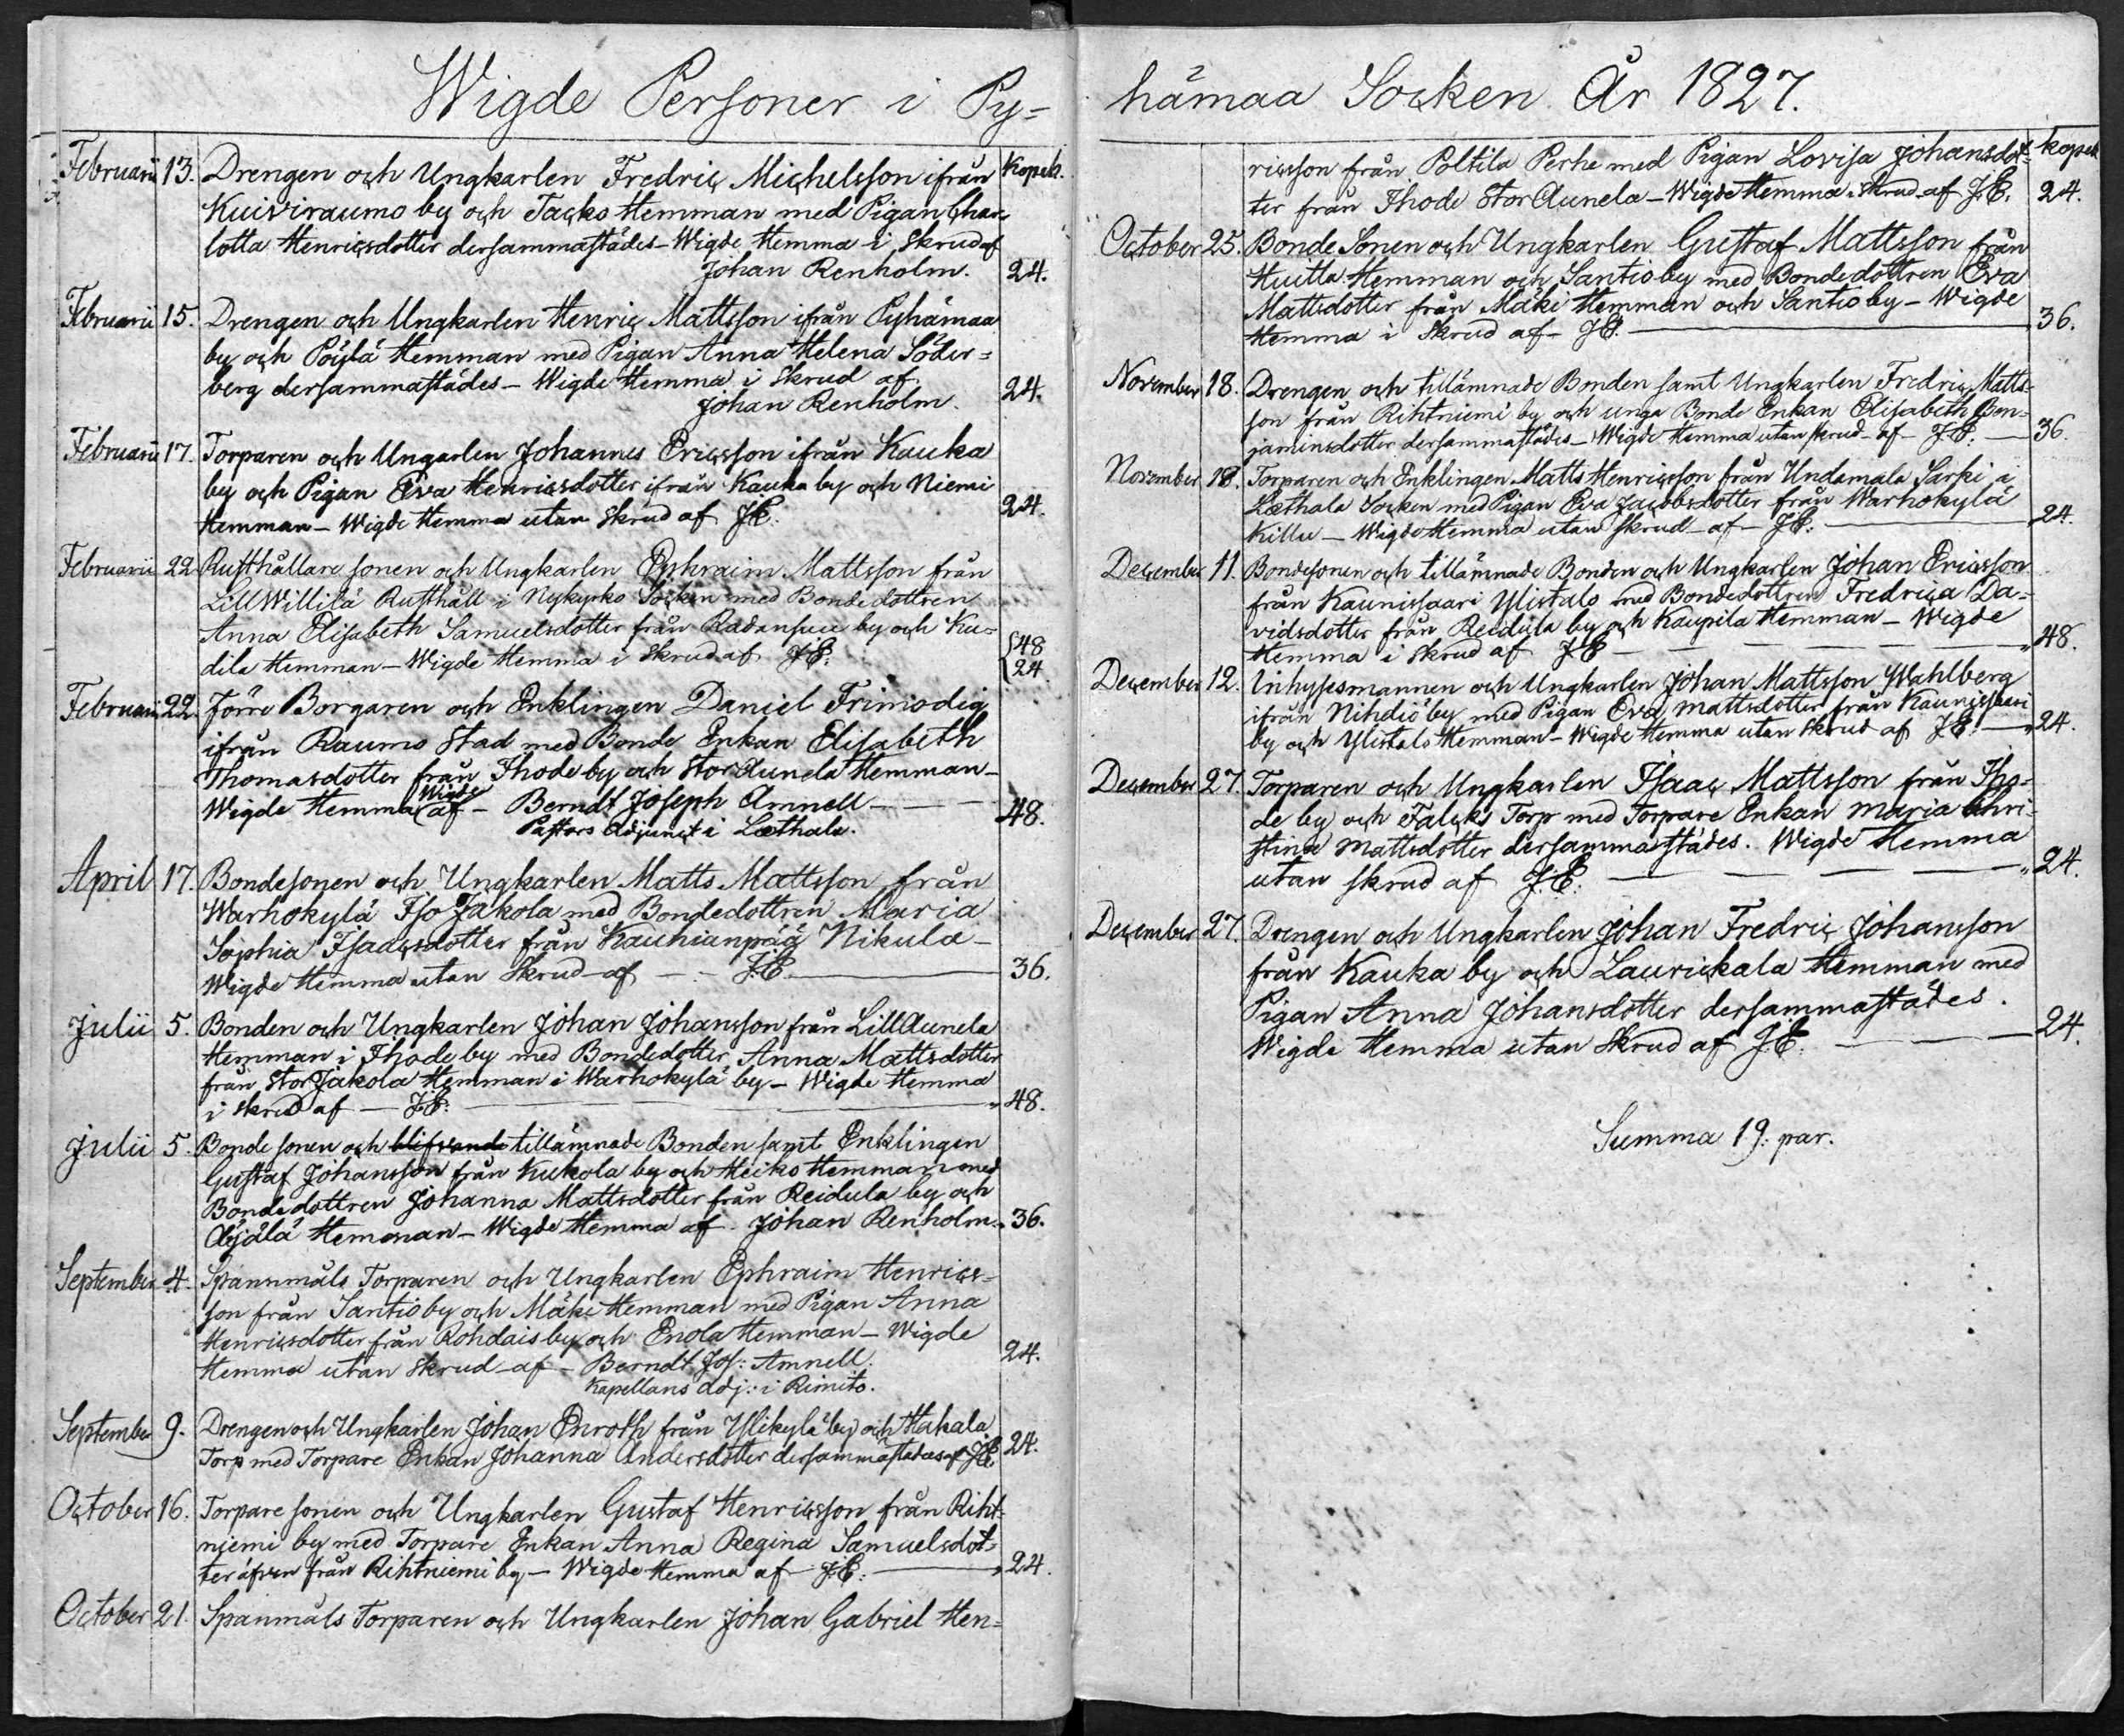 Wigde Personer i Py-
Kopek.
Februarii 13. Drengen och Ungkarlen Fredric Michelsson ifrån
Kuiviraumo by och Jacko Hemman med Pigan Char-
lotta Henricsdotter dersammastädes - Wigde Hemma i Skrud af
Johan Renholm. 24.
Februarii 15. Drengen och Ungkarlen Henric Mattsson ifrån Pyhämaa
by och Pöylä Hemman med Pigan Anna Helena Söder=
berg dersammastädes - Wigde Hemma i Skrud af 24.
Johan Renholm.
Februarii 17. Torparen och Ungarlen Johannes Ericsson ifrån Kauka
by och Pigan Eva Henricsdotter ifrån Kauka by och Niemi
Hemman - Wigde Hemma utan Skrud af J.E. 24.
Februarii 22 Rusthållare sonen och Ungkarlen Ephraim Mattsson från
LillWillilä Rusthåll i Nykyrko Socken med Bondedottren
Anna Elisabeth Samuelsdotter från Radansuu by och Ku= 48
dila Hemman - Wigde Hemma i Skrud af J.E. 24
Februarii 22. Förre Borgaren och Enklingen Daniel Frimodig
ifrån Raumo Stad med Bonde Enkan Elisabeth
Thomasdotter från Ihode by och StorAunela Hemman -
Wigde Hemma Wigde af - Berndt Joseph Amnell - 48.
Pastors Adjunct i Læthala.
April 17. Bondesonen och Ungkarlen Matts Mattsson från
Warhokylä Iso Jakola med Bondedottren Maria
Sophia Isaacsdotter från Kauhianpää Nikula -
Wigde Hemma utan Skrud af - - J.E. 36.
Julii 5. Bonden och Ungkarlen Johan Johansson från LillAunela
Hemman i Ihode by med Bondedotter Anna Mattsdotter
från StorJakola Hemman i Warhokylä by - Wigde Hemma
i Skrud af - J.E: „ 48.
Julii 5. Bonde sonen och blifvande tillämnade Bonden samt Enklingen
Gustaf Johansson från Kukola by och Heiko Hemman med
Bondedottren Johanna Mattsdotter från Reidula by och
Äijälä Hemman - Wigde Hemma af Johan Renholm. „ 36.
September 4. Spanmåls Torparen och Ungkarlen Ephraim Henrics-
son från Santio by och Mäki Hemman med Pigan Anna
Henricsdotter från Rohdais by och Enola Hemman - Wigde
Hemma utan Skrud af - Berndt Jos: Amnell. 24.
Kapellans Adj: i Rimito.
September 9. Drengen och Ungkarlen Johan Enroth från Ylikylä by och Hakala
Torp med Torpare Enkan Johanna Andersdotter dersammastädes af J.E. 24.
October 16. Torpare sonen och Ungkarlen Gustaf Henricsson från Riht-
niemi by med Torpare Enkan Anna Regina Samuelsdot-
ter äfven från Rihtniemi by - Wigde Hemma af J.E. „ 24.
October 21. Spanmåls Torparen och Ungkarlen Johan Gabriel Hen=
hämaa Socken År 1827.
Kopek
ricsson från Poltila Perhe med Pigan Lovisa Johansdot-
ter från Ihode StorAunela - Wigde Hemma i Skrud af J.E. 24.
October 25. Bonde Sonen och Ungkarlen Gustaf Mattsson från
Huitla Hemman och Santio by med Bondedottren Eva
Mattsdotter från Mäki Hemman och Santio by - Wigde
Hemma i Skrud af - J.E. 36.
November 18. Drengen och tillämnade Bonden samt Ungkarlen Fredric Matts-
son från Rihtniemi by och unga Bonde Enkan Elisabeth Ben-
jaminsdotter dersammastädes - Wigde Hemma utan Skrud af J.E. - 36.
November 18. Torparen och Enklingen Matts Henricsson från Undamala Särki i
Læthala Socken med Pigan Eva Jacobsdotter från Warhokylä
Killu - Wigde Hemma utan Skrud af J.E: 24.
December 11. Bondesonen och tillämnade Bonden och Ungkarlen Johan Ericsson
från Kaunissaari Ylistalo med Bondedottren Fredrica Da-
vidsdotter från Reidula by och Kaupila Hemman - Wigde
Hemma i Skrud af J.E - „ 48.
December 12. Inhysesmannen och Ungkarlen Johan Mattsson Wahlberg
ifrån Nihdiö by med Pigan Eva Mattsdotter från Kaunissaari
by och Ylistalo Hemman - Wigde Hemma utan Skrud af J.E. - „ 24.
December 27. Torparen och Ungkarlen Isaac Mattsson från Iho-
de by och Falcks Torp med Torpare Enkan Maria Chri-
stina Mattsdotter dersammastädes. Wigde Hemma
utan skrud af J.E. „ 24.
December 27. Drengen och Ungkarlen Johan Fredric Johansson
från Kauka by och Laurickala Hemman med
Pigan Anna Johansdotter dersammastädes.
Wigde Hemma utan Skrud af J.E. 24.
Summa 19. par.